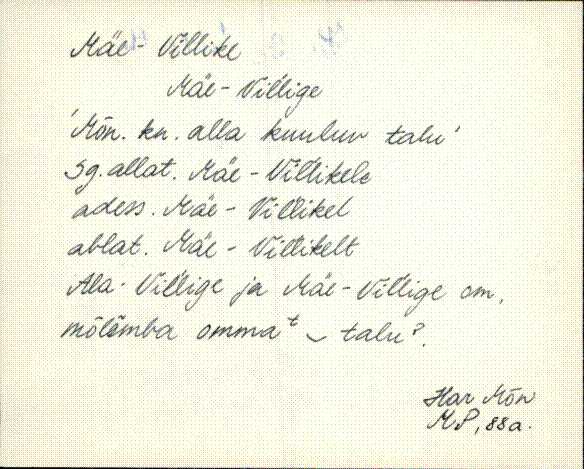 Mäe-Villike
Mäe-Villige
'Mõn. kn. alla kuuluv talu'
Sg. allat. Mäe-Villikele
adess. Mäe-Villikel
ablat. Mäe-Villikelt
Ala-Villige ja Mäe-Villige om,
mõlõmba ommaᵗ ‿ taluˀ.
Har Mõn
MP, 88a.